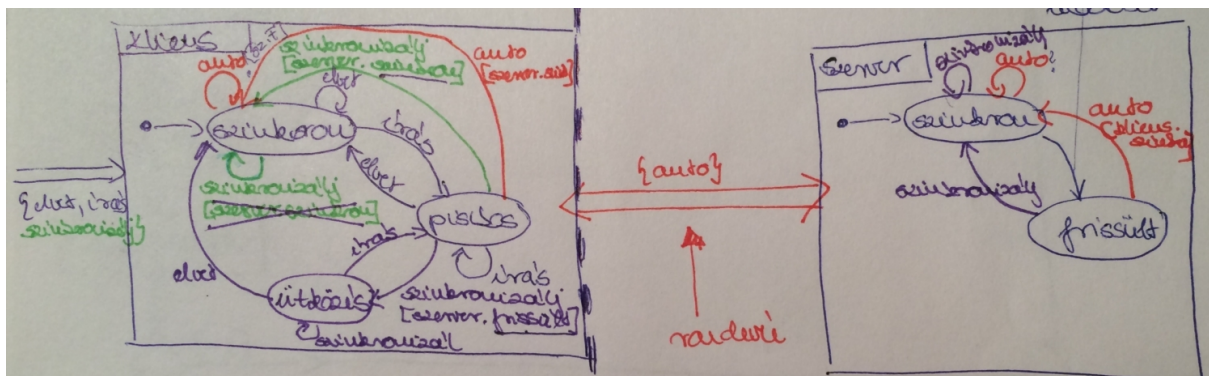 Kliens
auto
szinkronizálj
[szerver.szinkron]
auto
elvet
szinkron
írás
elvet
szinkronizálj
[szerver.szinkron]
piszkos
{elvet, írás
szinkronizálj}
elvet
írás
írás
ütközés
szinkronizálj
[szerver.frissült]
szinkronizál
{auto}
randevú
szerver
szinkronizálj
auto?
szinkron
auto
szinkronizálj
frissült